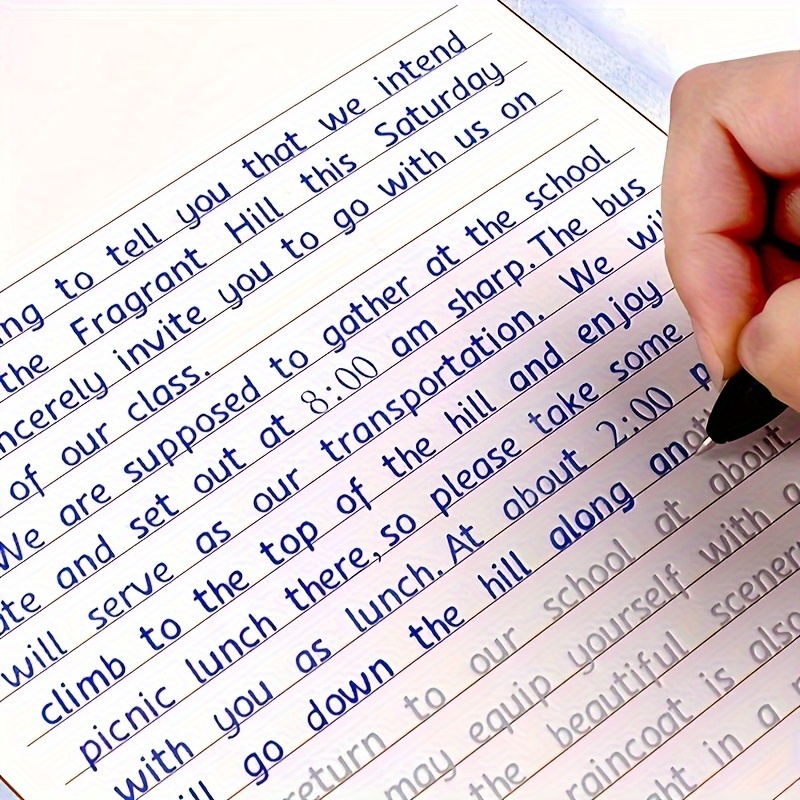 ing to tell you that we intend
the Fragrant Hill this Saturday
ncerely invite you to go with us on
of our class.
We are supposed to gather at the school
ate and set out at 8:00 am sharp.The bus
will serve as our transportation. We wil
climb to the top of the hill and enjoy
picnic lunch there,so please take some
with you as lunch.At about 2:00 p
ill go down the hill along anoth
return to our school at about
may equip yourself with a
the beautiful scenery
raincoat is also
ght in a